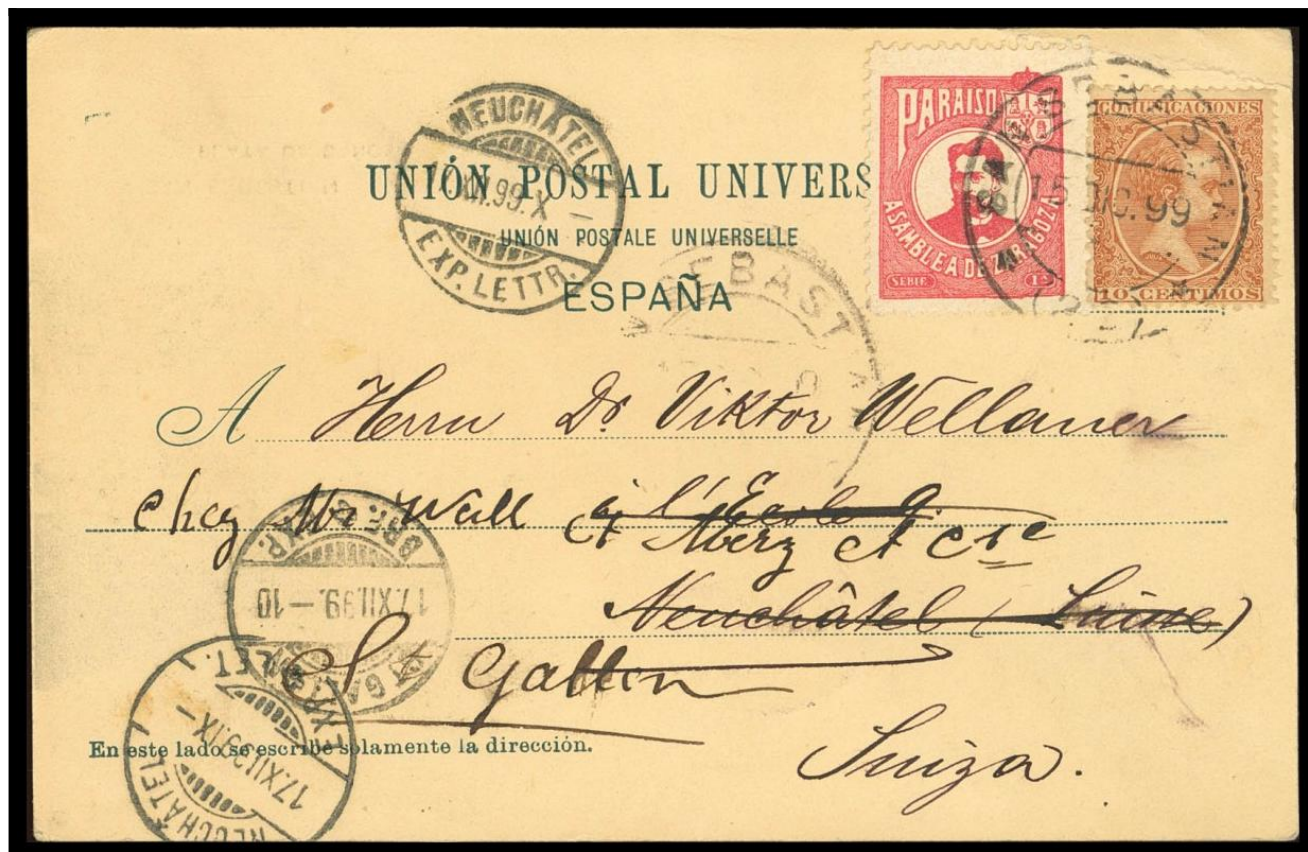 NEUCHATEL
XII.99.X –
EXP. LETTR.
UNIÓN POSTAL UNIVERS
UNIÓN POSTALE UNIVERSELLE
ESPAÑA
PARAISO
ASAMBLEA DE ZARAGOZA
SERIE 1ª
COMUNICACIONES
10 CENTIMOS
SAN SEBASTIAN
15 DIC. 99
SEBAST
A Herrn Dr Viktor Wellauer
Chez Mr Wall à l'Ecole
& Merz et Cie
Neuchâtel (Suisse)
St Gallen
Suiza.
BRF. EXP.
17.XII.99. – 10
ST GALLEN
EXP. LET.
17.XII.99.IX –
NEUCHATEL
En este lado se escribe solamente la dirección.